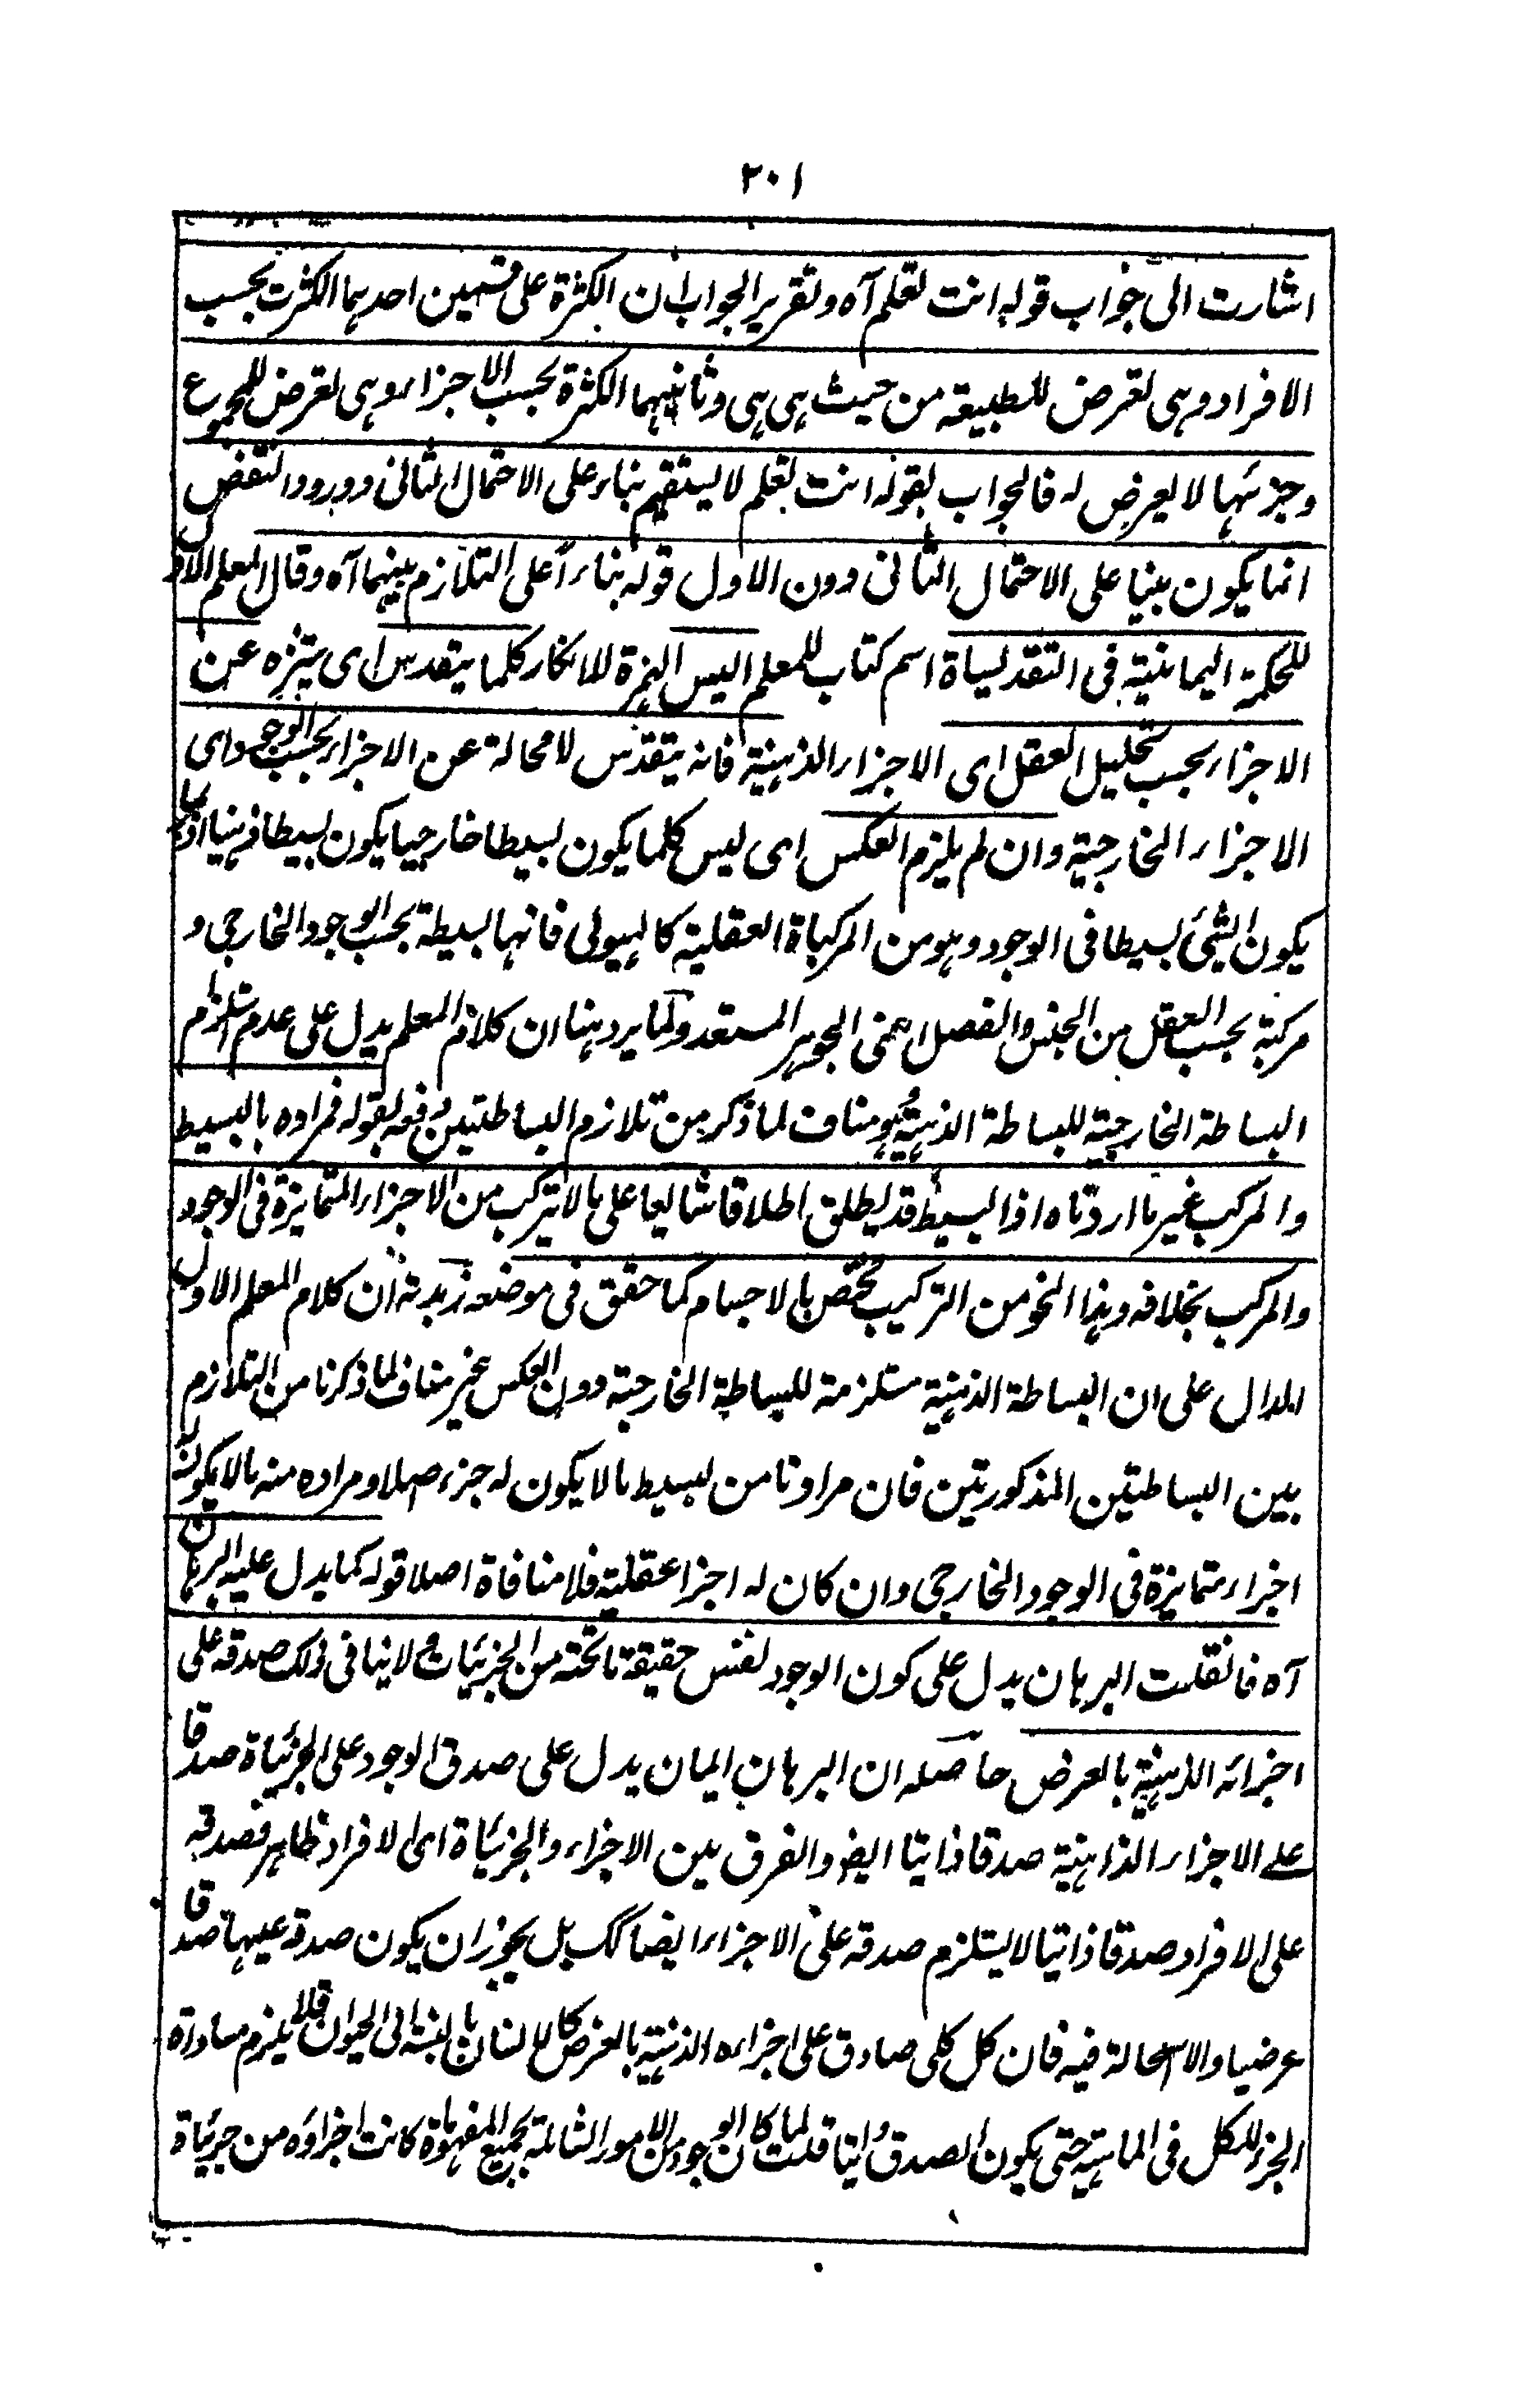 ٢٠١
اشارت الى جواب قوله انت تعلم آه وتقرير الجواب ان الكثرة على قسمين احدهما الكثرت بحسب
الافراد وهى تعرض للطبيعة من حيث هى هى وثانيهما الكثرة بحسب الاجزاء وهى تعرض للمجموع
وجزئها لا يعرض له فالجواب بقوله انت تعلم لا يستقيم بناء على الاحتمال الثانى وورود النقض
انما يكون مبنيا على الاحتمال الثانى دون الاول قوله بناءً على التلازم بينهما آه وقال المعلم الاول
للحكمة اليمانية فى التقديساة اسم كتاب للمعلم اليس الهمزة للانكار كلما يتقدس اى يتنزه عن
الاجزاء بحسب تحليل العقل اى الاجزاء الذهنية فانه يتقدس لا محالة عن الاجزاء بحسب الوجود اى
الاجزاء الخارجية وان لم يلزم العكس اى ليس كلما يكون بسيطا خارجيا يكون بسيطا ذهنيا اذ ربما
يكون الشئ بسيطا فى الوجود وهو من المركباة العقلية كالهيولى فانها بسيطة بحسب الوجود الخارجى و
مركبة بحسب العقل من الجنس والفصل اعنى الجوهر المستعد ولما يرد ههنا ان كلام المعلم يدل على عدم استلزام
البساطة الخارجية للبساطة الذهنية فهو مناف لما ذكر من تلازم البساطتين دفعه بقوله فمراده بالبسيط
والمركب غير ما اردناه اذ البسيط قد يطلق اطلاقا شايعا على ما لا يتركب من الاجزاء المتمايزة فى الوجود
والمركب بخلافه وهذا النحو من التركيب مختص بالاجسام كما حقق فى موضعه زبدته ان كلام المعلم الاول
الدال على ان البساطة الذهنية مستلزمة للبساطة الخارجية دون العكس غير مناف لما ذكرنا من التلازم
بين البساطتين المذكورتين فان مرادنا من لبسيط ما لا يكون له جزء اصلا ومراده منه ما لا يكون له
اجزاء متمايزة فى الوجود الخارجى وان كان له اجزا عقلية فلا منافاة اصلا قوله كما يدل عليه البرهان
آه فانقلت البرهان يدل على كون الوجود نفس حقيقة ما تحته من الجزئيات و لا ينافى ذلك صدقه على
اجزائه الذهنية بالعرض حاصله ان البرهان ايمان يدل على صدق الوجود على الجزئياة صدقا
على الاجزاء الذاهنية صدقا ذاتيا ايضو الفرق بين الاجزاء والجزئياة اى الافراد ظاهر فصدقه
على الافراد صدقا ذاتيا لا يستلزم صدقه على الاجزاء ايضا كك بل يجوز ان يكون صدقه عيها صدقا
عرضيا والاستحالة فيه فان كل كلى صادق على اجزاءه الذهنية بالعرض كالانسان بالنسبة الى الحيوان فلا يلزم مساواة
الجزء للكل فى الماهية حتى يكون الصدق ذاتيا قلت لما كان الوجود من الامور الشاملة بجميع المفهوماة كانت اجزاؤه من جزئياة